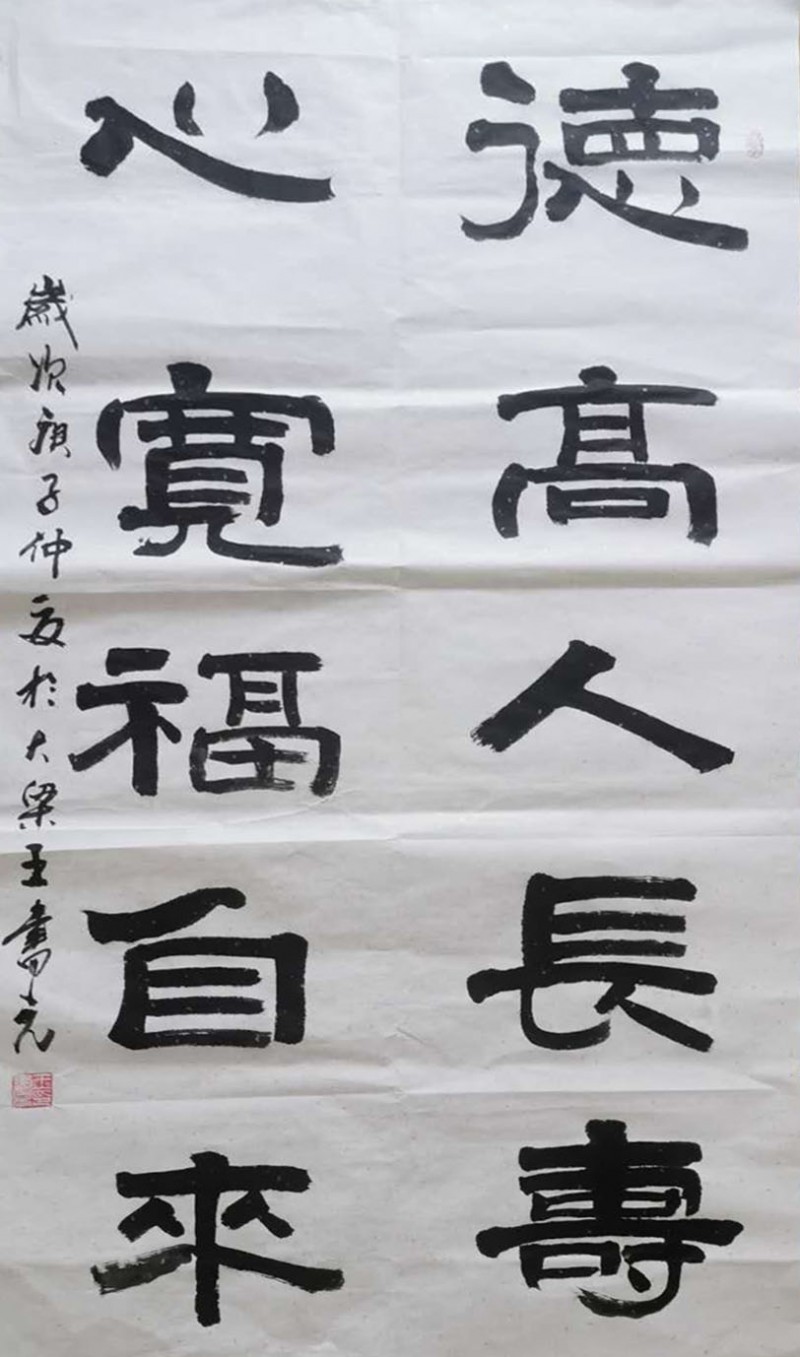 德高人長壽
心寬福自來
歲次庚子仲夏於大梁王書克